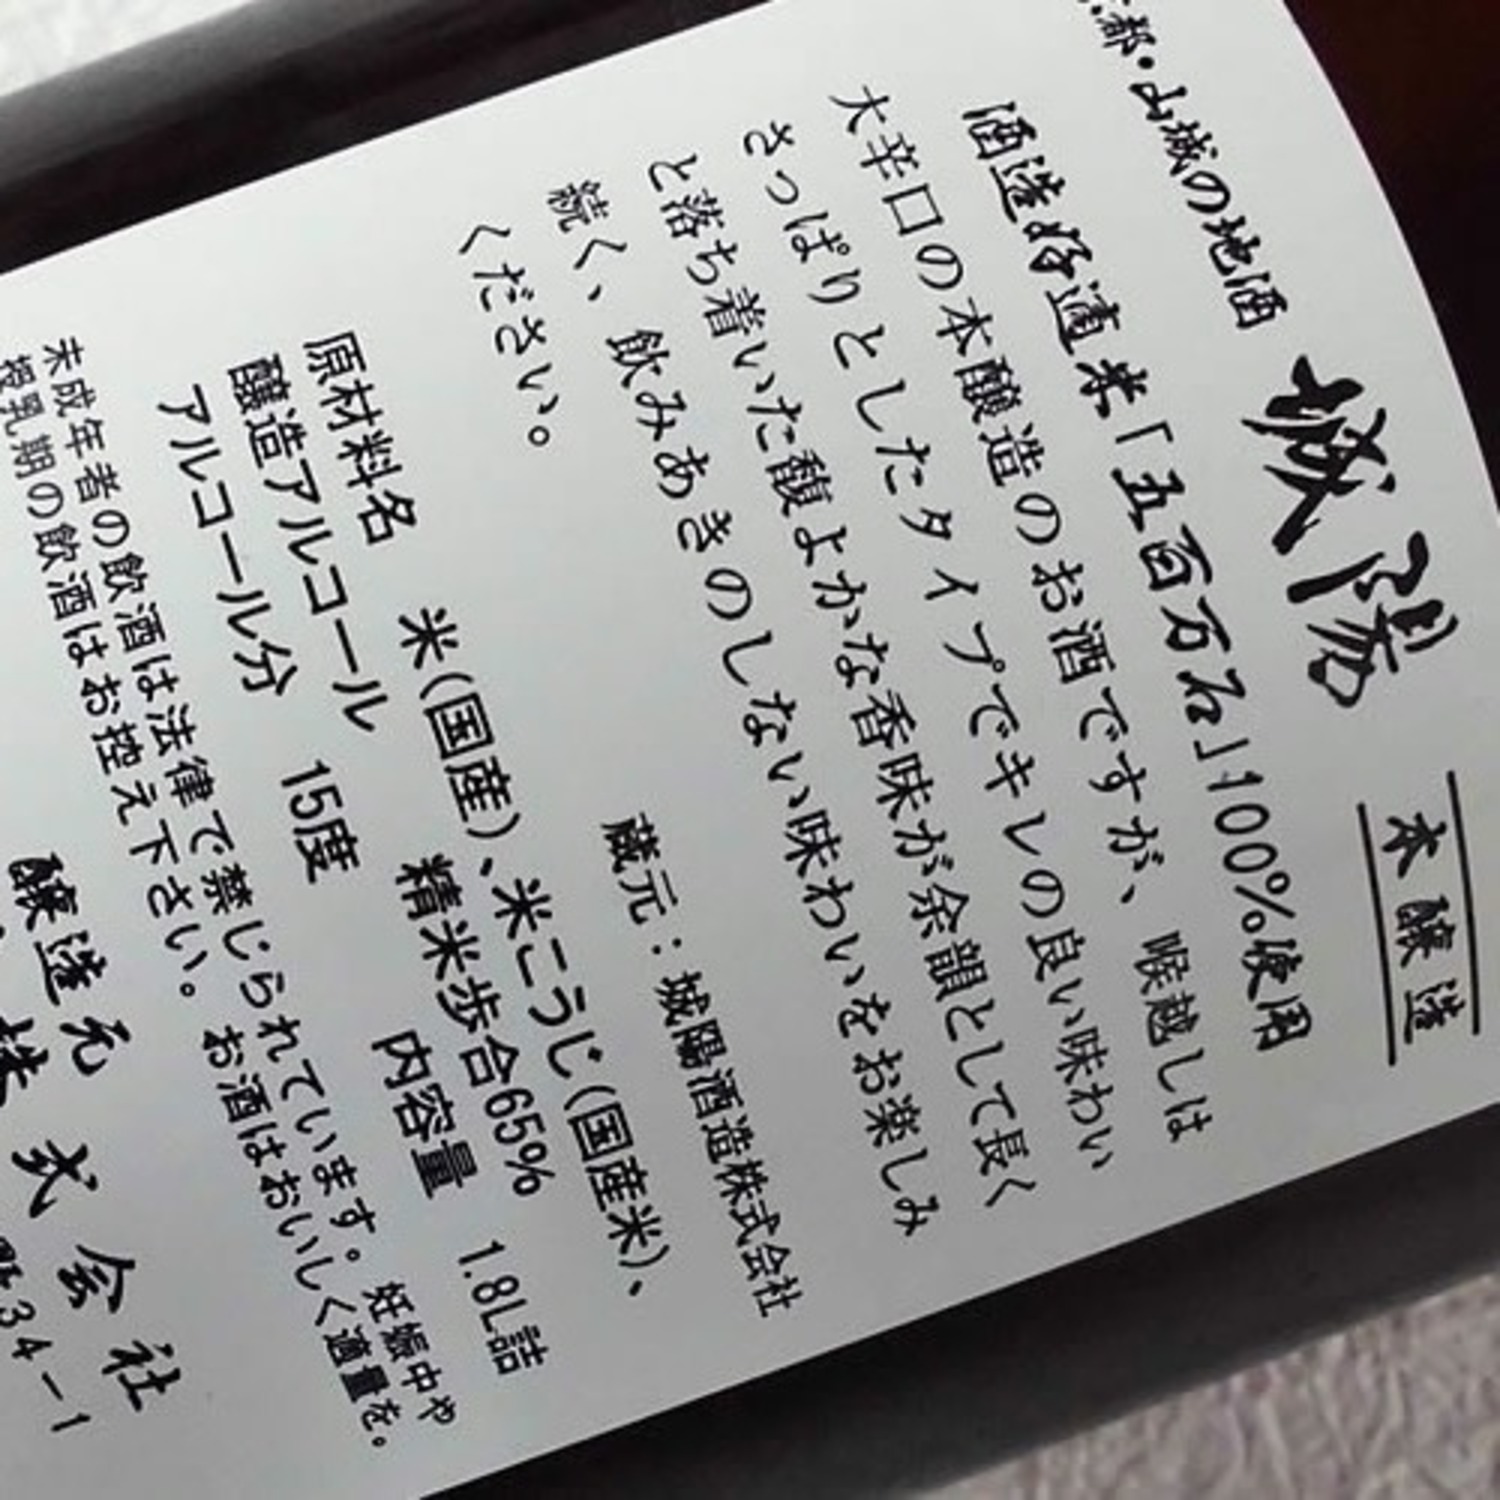 都・山城の地酒
城陽
本醸造
酒造好適米「五百万石」100%使用
大辛口の本醸造のお酒ですが、喉越しは
さっぱりとしたタイプでキレの良い味わい
と落ち着いた馥よかな香味が余韻として長く
続く、飲みあきのしない味わいをお楽しみ
ください。
蔵元：城陽酒造株式会社
原材料名 米（国産）、米こうじ（国産米）、
醸造アルコール 精米歩合65%
アルコール分 15度 内容量 1.8L詰
未成年者の飲酒は法律で禁じられています。妊娠中や
授乳期の飲酒はお控え下さい。お酒はおいしく適量を。
醸造元
株式会社
34-1